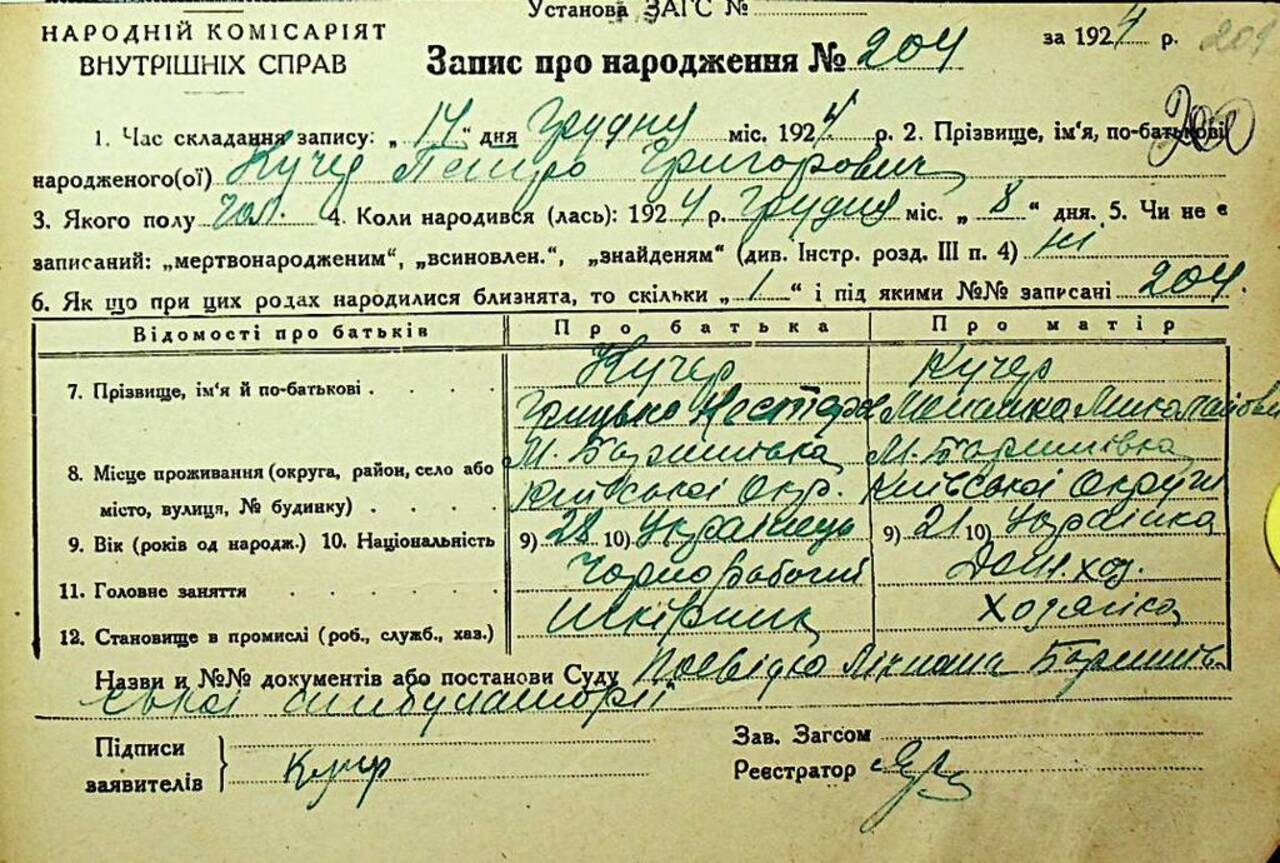 Установа ЗАГС №
НАРОДНІЙ КОМІСАРІЯТ
ВНУТРІШНІХ СПРАВ
Запис про народження № 204
за 1924 р. 204
1. Час складання запису: „ 17 “ дня Грудня міс. 1924 р. 2. Прізвище, ім'я, по-батькові 200
народженого(ої) Кучер Петро Григорович
3. Якого полу чол. 4. Коли народився (лась): 1924 р. Грудня міс. „ 8 “ дня. 5. Чи не є
записаний: „мертвонародженим“, „всиновлен.“, „знайденям“ (див. Інстр. розд. III п. 4) ні
6. Як що при цих родах народилися близнята, то скільки „ 1 “ і під якими №№ записані 204.
Відомості про батьків Про батька Про матір
7. Прізвище, ім'я й по-батькові . . . . Кучер Кучер
Грицько Нестеров Миколайовн
8. Місце проживання (округа, район, село або М. Баришівка М. Баришівка
місто, вулиця, № будинку) . . . . Київської Окр. Київської Округи
9. Вік (років од народж.) 10. Національність 9) 28 10) Українець 9) 21 10) Українка
11. Головне заняття . . . . . . Чорноробочий Дом. хоз.
12. Становище в промислі (роб., служб., хаз.) Хозяйка
Назви и №№ документів або постанови Суду Посвідка Баришів
ської амбулаторії
Підписи
заявителів } Кучер
Зав. Загсом
Реєстратор